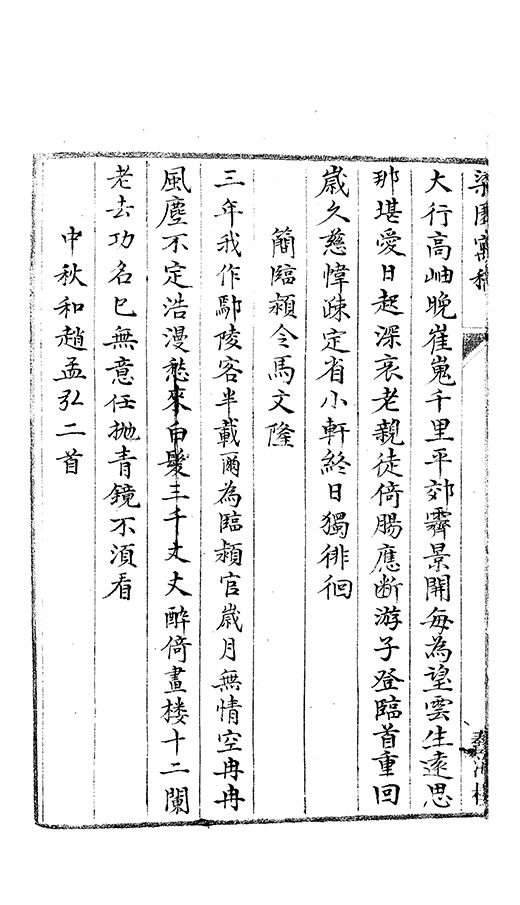 梁園寓稿
大行高岫晚崔嵬千里平郊霽景開每為望雲生遠思
那堪愛日起深哀老親徒倚腸應断游子登臨首重回
歲久慈幃踈定省小軒終日獨徘徊
簡臨潁令馬文隆
三年我作鄢陵客半載爾為臨潁官歲月無情空冉冉
風塵不定浩漫愁來白髮三千丈丈醉倚畫樓十二闌
老去功名已無意任抛青鏡不湏看
中秋和趙孟弘二首